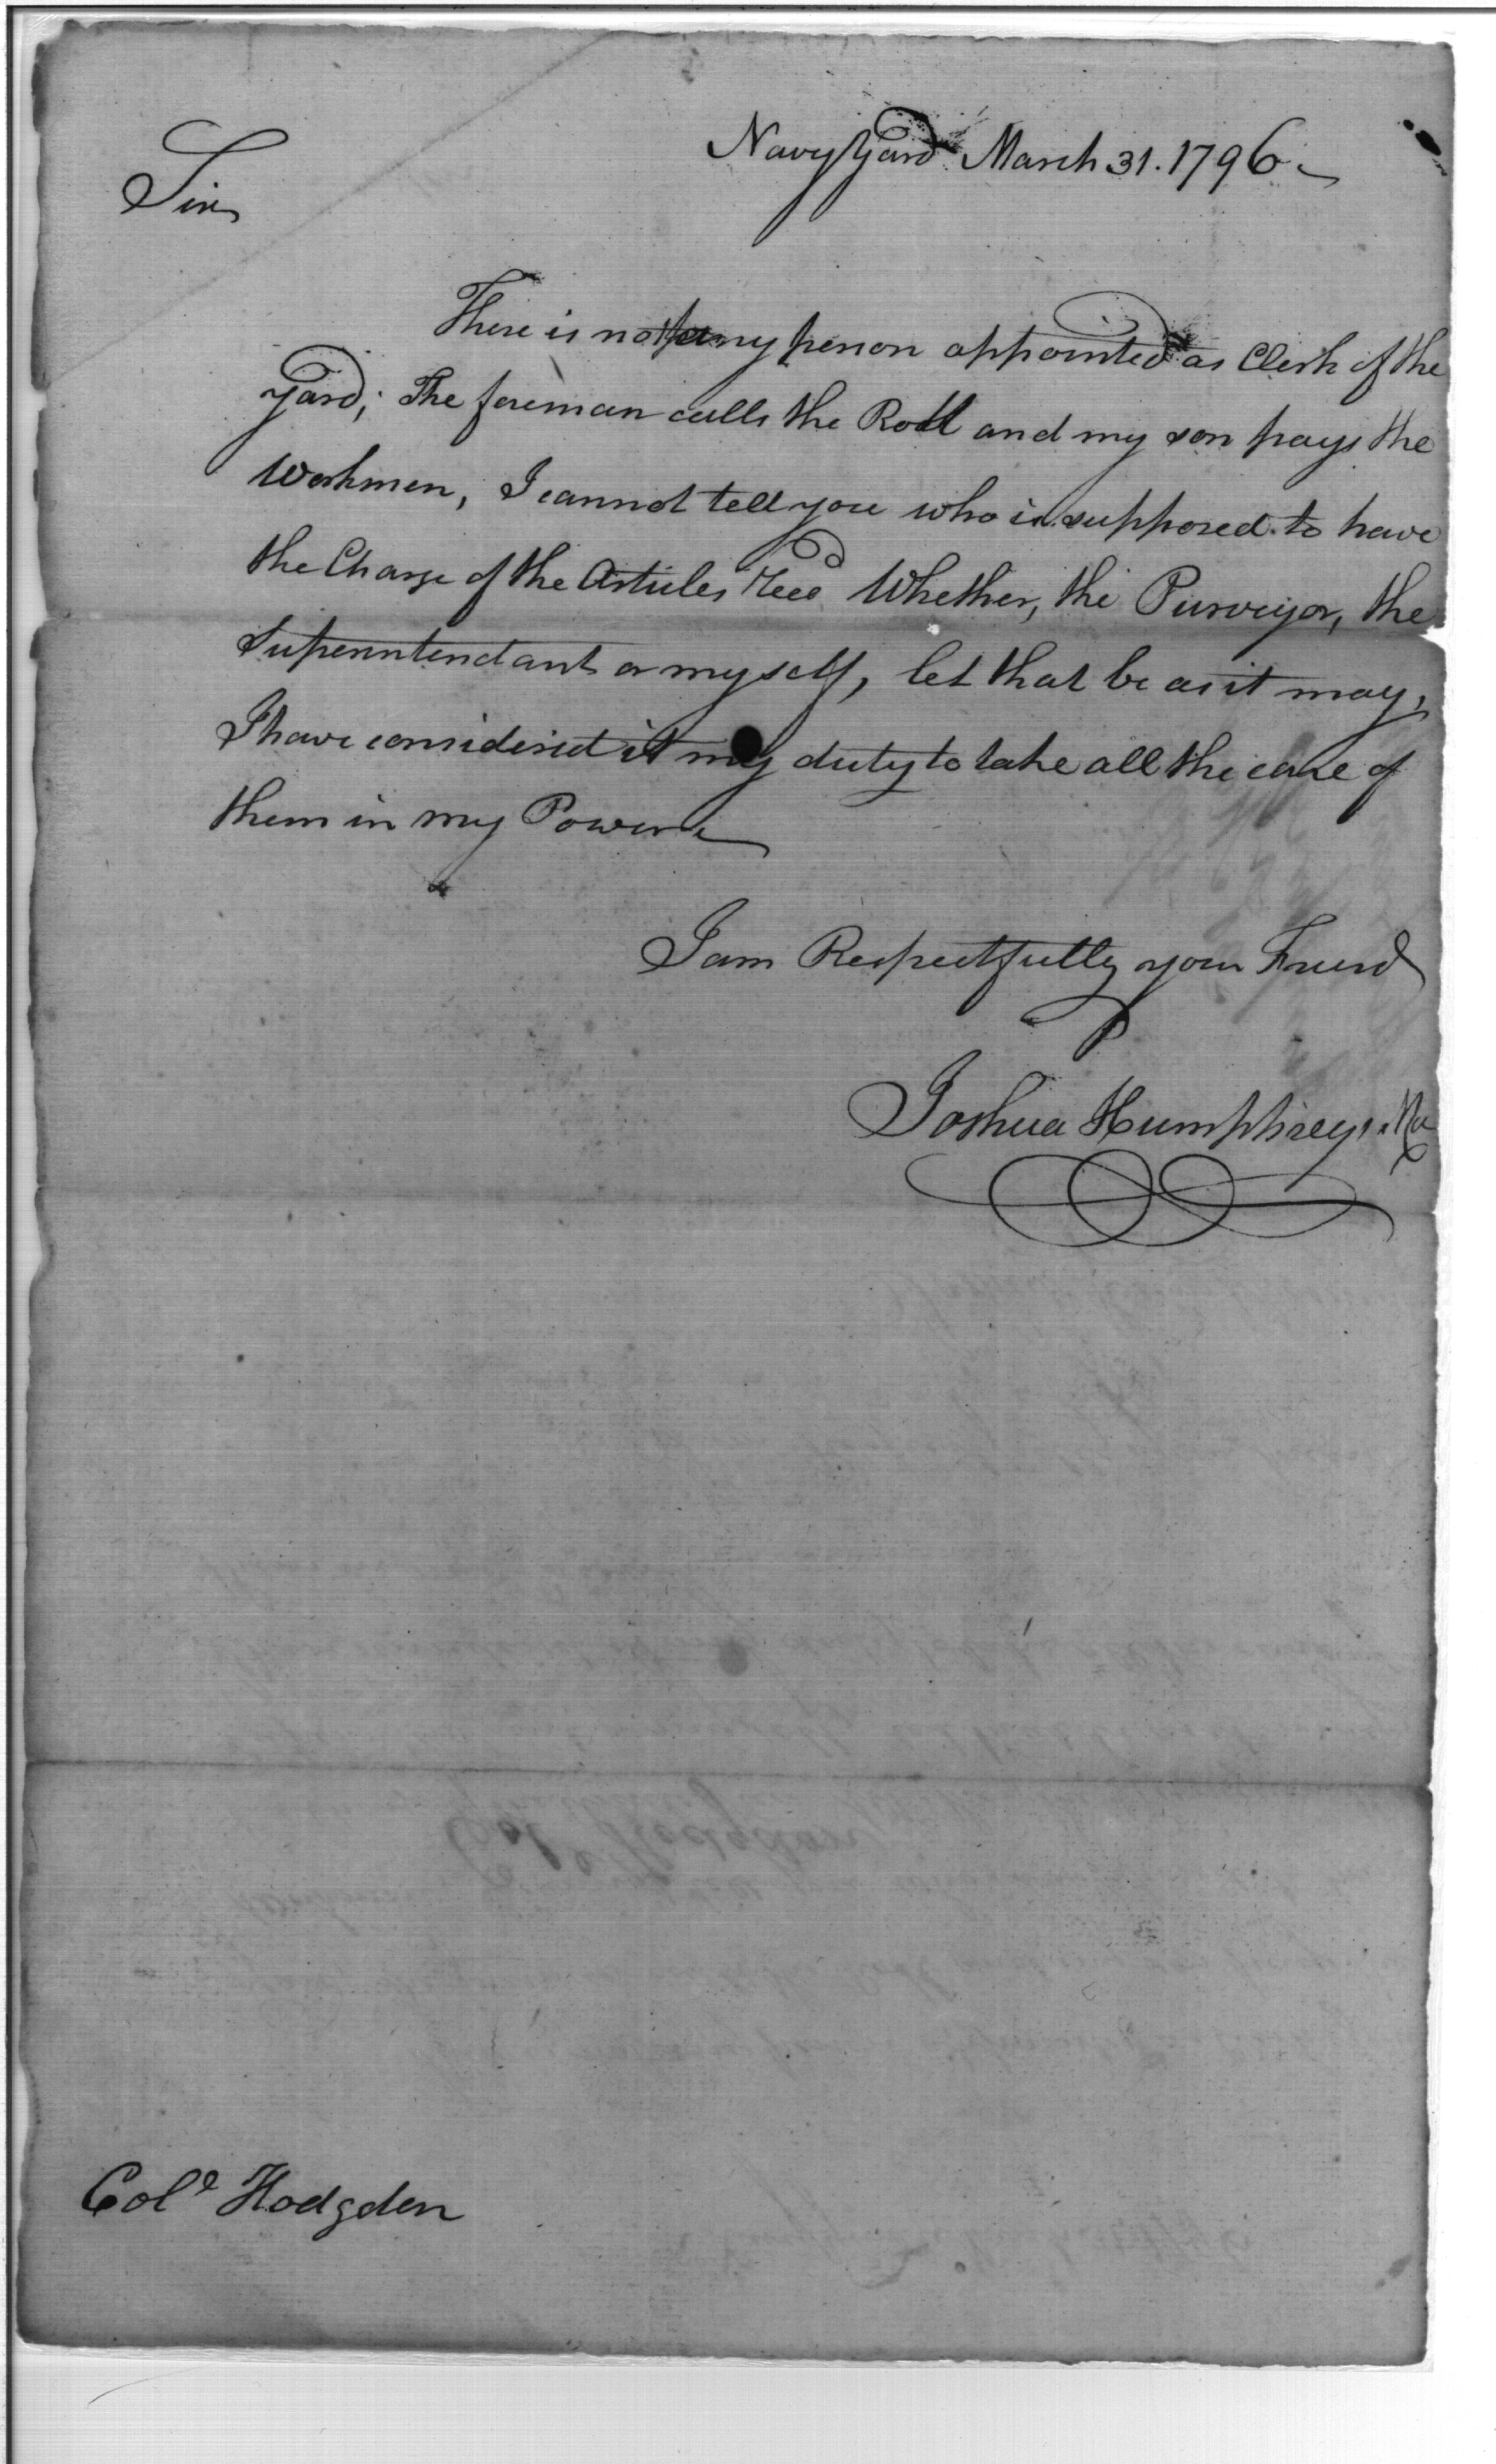 Navy Yard March 31. 1796
Sir
There is not any person appointed as Clerk of the
yard; The foreman calls the Roll and my son pays the
Workmen, I cannot tell you who is supposed to have
the Charge of the Articles Recd Whether, the Purveyor, the
Superintendant or myself, let that be as it may,
I have considered it my duty to take all the care of
them in my Power
I am Respectfully your Friend
Joshua Humphreys
Colo Hodgden